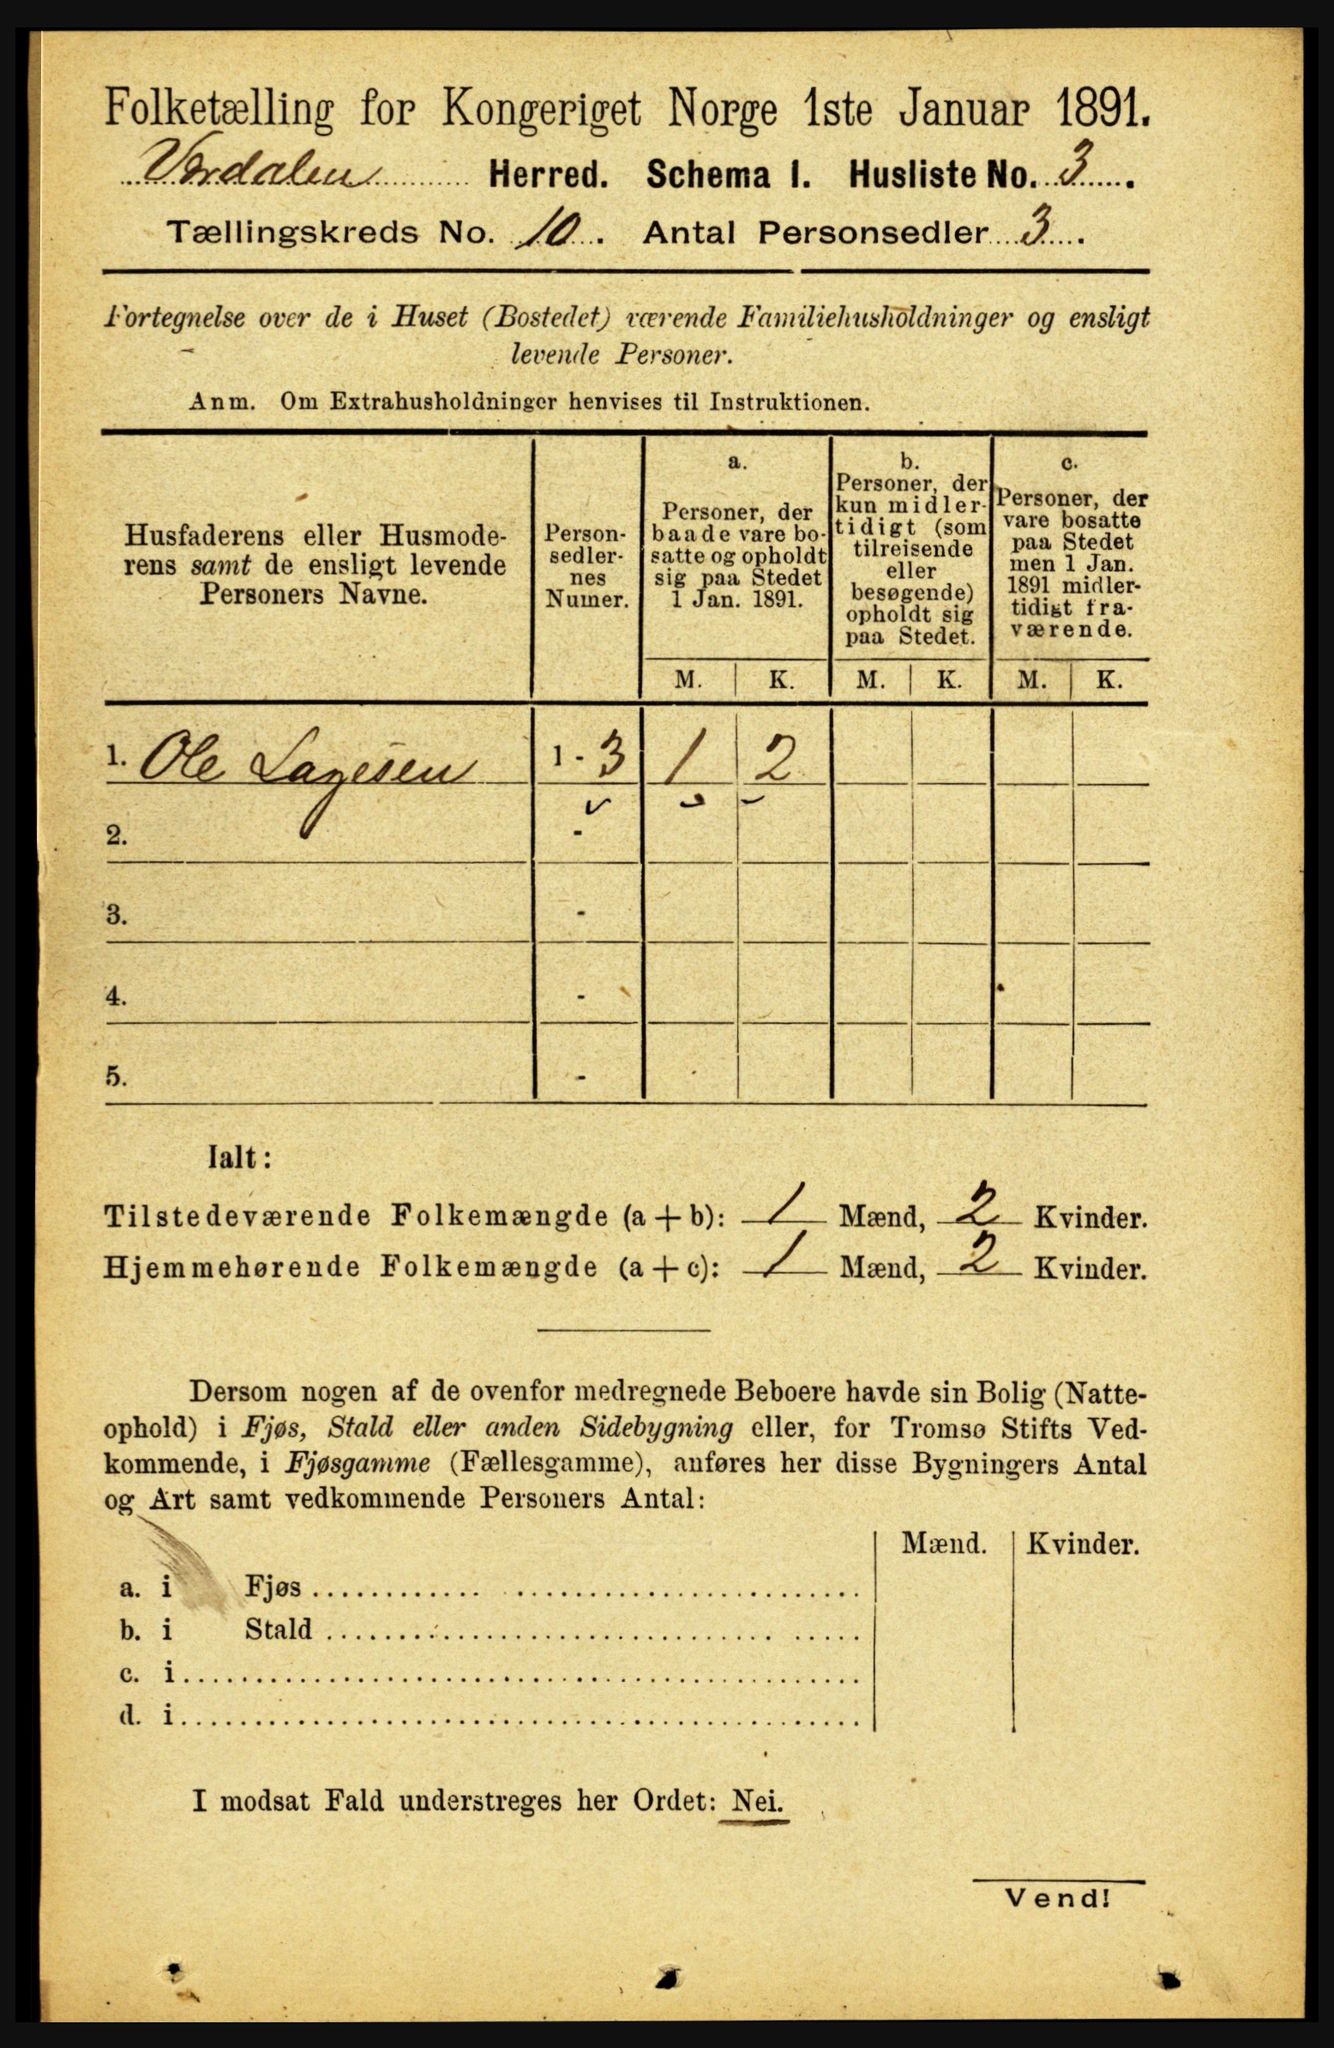 Folketælling for Kongeriget Norge 1ste Januar 1891.
Verdalen Herred. Schema I. Husliste No. 3.
Tællingskreds No. 10. Antal Personsedler 3.
Fortegnelse over de i Huset (Bostedet) værende Familiehusholdninger og ensligt
levende Personer.
Anm. Om Extrahusholdninger henvises til Instruktionen.
Husfaderens eller Husmode-
rens samt de ensligt levende
Personers Navne.
Person-
sedler-
nes
Numer.
a.
Personer, der
baade vare bo-
satte og opholdt
sig paa Stedet
1 Jan. 1891.
b.
Personer, der
kun midler-
tidigt (som
tilreisende
eller
besøgende)
opholdt sig
paa Stedet.
c.
Personer, der
vare bosatte
paa Stedet
men 1 Jan.
1891 midler-
tidigt fra-
værende.
M. K. M. K. M. K.
1. Ole 1 - 3 1 2
2. -
3. -
4. -
5. -
Ialt:
Tilstedeværende Folkemængde (a + b): 1 Mænd, 2 Kvinder.
Hjemmehørende Folkemængde (a + c): 1 Mænd, 2 Kvinder.
Dersom nogen af de ovenfor medregnede Beboere havde sin Bolig (Natte-
ophold) i Fjøs, Stald eller anden Sidebygning eller, for Tromsø Stifts Ved-
kommende, i Fjøsgamme (Fællesgamme), anføres her disse Bygningers Antal
og Art samt vedkommende Personers Antal:
Mænd. Kvinder.
a. i Fjøs
b. i Stald
c. i
d. i
I modsat Fald understreges her Ordet: Nei.
Vend!